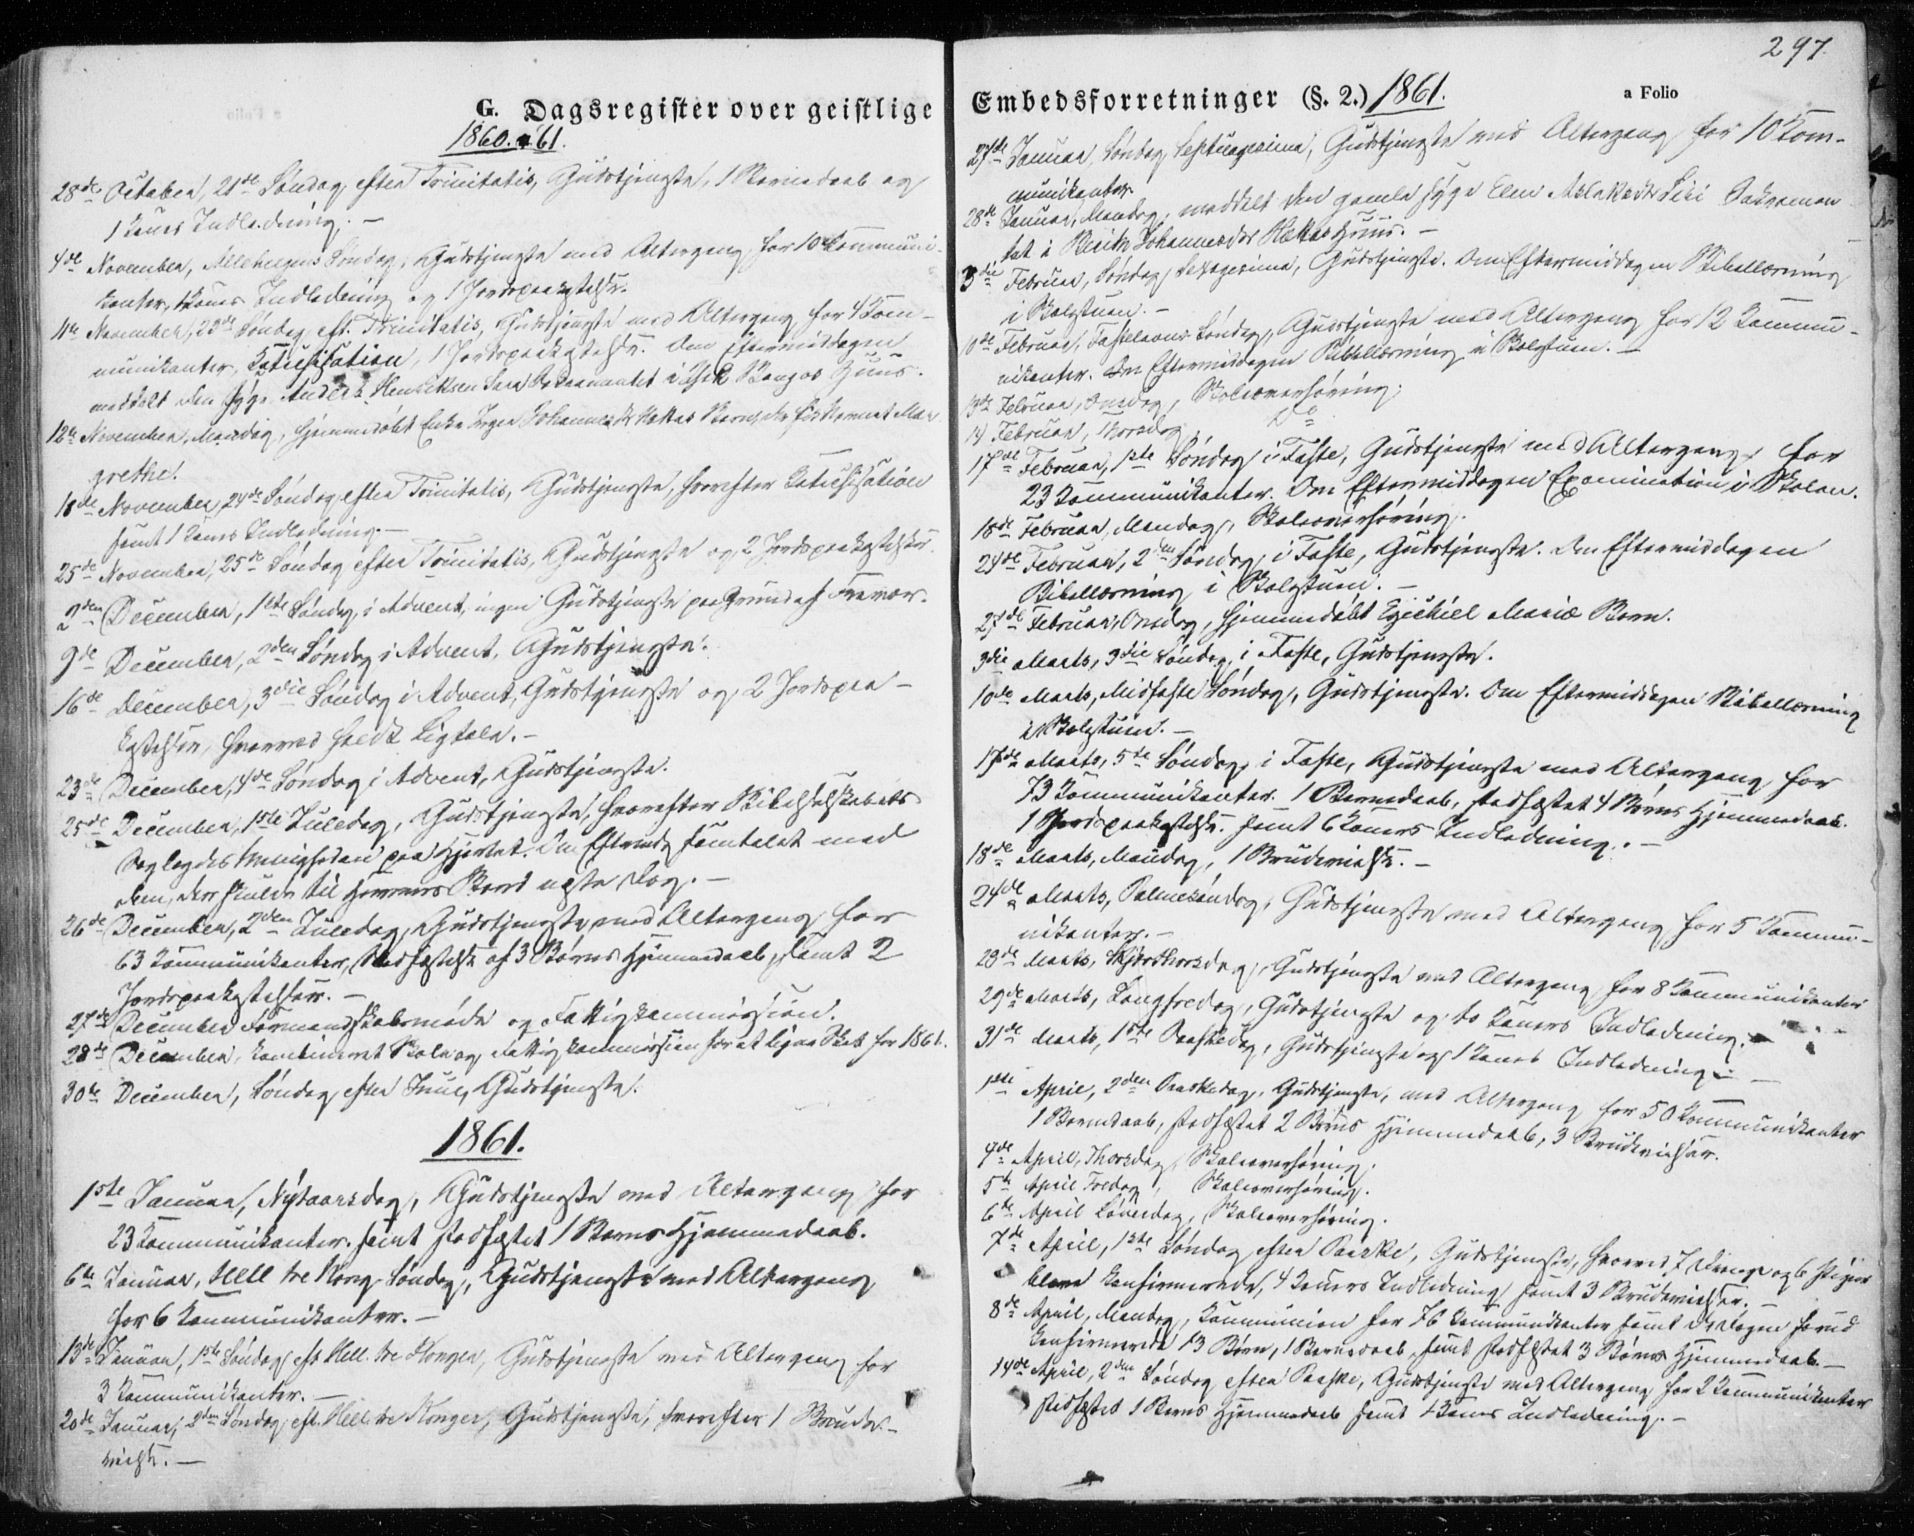 G. Dagsregister over geistlige
1860. & 61.
28de October, 21de Søndag efter Trinitatis, Gudstjeneste, 1 Barnedaab og
1 Kones Indledning. —
4de November, Allehelgens Søndag, Gudstjeneste med Altergang for 10 Kommuni-
kanter, Kones Indledning og 1 Jordspaakastelse.
11te November, 23de Søndag eft. Trinitatis, Gudstjeneste med Altergang for 4 Kom-
munikanter, Katechisation, 1 Jordspaakastelse. Om Eftermiddagen
meddelt den syge Anders Henriksen Sara Sakramentet i Huus.
12te November, Mandag, hjemmedøbt Enke Inger Johannesdr Hættas Barn, Mar-
grethe.
18de November, 24de Søndag efter Trinitatis, Gudstjeneste, hvorefter Katechisation
samt 1 Kones Indledning. —
25de November, 25de Søndag efter Trinitatis, Gudstjeneste og 2 Jordspaakastelser.
2den December, 1ste Søndag i Advent, ingen Gudstjeneste paa Grund af
9de December, 2den Søndag i Advent, Gudstjeneste.
16de December, 3die Søndag i Advent, Gudstjeneste og 2 Jordspaa-
kastelser, hvorved holdt Ligtale. —
23de December, 4de Søndag i Advent, Gudstjeneste.
25de December, 1ste Juledag, Gudstjeneste, hvorefter Bibelselskabets
Sag lagdes Menigheden paa Hjertet. Om Efterm. samtalet med
dem, der skulde til Herrens Bord næste Dag. —
26de December, 2den Juledag, Gudstjeneste med Altergang for
63 Kommunikanter, Stadfæstelse af 3 Børns Hjemmedaab, samt 2
Jordspaakastelser. —
27de December Formandskabsmøde og Fattigkommission.
28de December, kombineret Skole og Fattigkommission for at ligne Skat for 1861.
30te December, Søndag efter Juul, Gudstjeneste.
1861.
1ste Januar, Nytaarsdag, Gudstjeneste med Altergang for
23 Kommunikanter, samt stadfæstet 1 Barns Hjemmedaab.
6te Januar, Hell tre Kong. Søndag, Gudstjeneste med Altergang
for 6 Kommunikanter. —
13de Januar, 1ste Søndag eft Hell. tre Konger, Gudstjeneste med Altergang for
3 Kommunikanter. —
20de Januar, 2den Søndag eft. Hell. tre Konger, Gudstjeneste, hvorefter 1 Brude-
vielse. —
297.
Embedsforretninger (§. 2.) 1861.
a Folio
27de Januar, Søndag Septuagesima, Gudstjeneste med Altergang for 10 Kom-
munikanter.
28de Januar, Mandag, meddelt den gamle syge Elen Aslaksdr Siri Sakramen-
tet i Berith Johannesdr Hættas Huus. —
3die Februar, Søndag Sexagesima, Gudstjeneste. Om Eftermiddagen Bibellæsning
i Skolstuen. —
10de Februar, Fastelavns Søndag, Gudstjeneste med Altergang for 12 Kommu-
nikanter. Om Eftermiddagen Bibellæsning i Skolstuen. —
13de Februar, Onsdag, Skoleoverhøring.
14 Februar, Thorsdag, Do
17de Februar, 1ste Søndag i Faste, Gudstjeneste med Altergang for
23 Kommunikanter. Om Eftermiddagen Examination i Skolen.
18de Februar, Mandag, Skoleoverhøring.
24de Februar, 2den Søndag i Faste, Gudstjeneste. Om Eftermiddagen
Bibellæsning i Skolstuen. —
27de Februar, Onsdag, hjemmedøbt Ezechiel Mariæ Barn.
3die Marts, 3die Søndag i Faste, Gudstjeneste.
10de Marts, Midfaste Søndag, Gudstjeneste. Om Eftermiddagen Bibellæsning
i Skolstuen. —
17de Marts, 5te Søndag i Faste, Gudstjeneste med Altergang for
73 Kommunikanter. 1 Barnedaab, stadfæstet 4 Børns Hjemmedaab.
1 Jordspaakastelse. samt 6 Koners Indledning. —
18de Marts, Mandag, 1 Brudevielse. —
24de Marts, Palmesøndag, Gudstjeneste med Altergang for 5 Kommu-
nikanter. —
28de Marts, Skjærthorsdag, Gudstjeneste med Altergang for 8 Kommunikanter
29de Marts, Langfredag, Gudstjeneste og to Koners Indledning.
31te Marts, 1ste Paaskedag, Gudstjeneste og 1 Kones Indledning —
1ste April, 2den Paaskedag, Gudstjeneste, med Altergang for 50 Kommunikanter
1 Barnedaab, stadfæstet 2 Børns Hjemmedaab, 3 Brudevielser.
4de April, Thorsdag, Skoleoverhøring.
5te April Fredag, Skoleoverhøring.
6te April Løverdag, Skoleoverhøring.
7de April, 1ste Søndag efter Paaske, Gudstjeneste, hvorved 7 Drenge og 6 Piger
bleve konfirmerede, 4 Koners Indledning samt 3 Brudevielser. —
8de April, Mandag, Kommunion for 76 Kommunikanter samt de Dagen forud
konfirmerede 13 Børn, 1 Barnedaab, samt stadfæstet 3 Børns Hjemmedaab. —
14de April, 2den Søndag efter Paaske, Gudstjeneste med Altergang for 2 Kommunikanter
stadfæstet 1 Barns Hjemmedaab samt 1 Kones Indledning. —